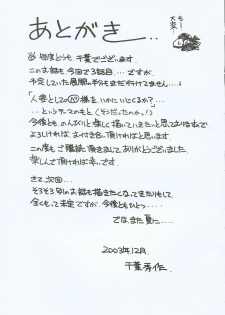 あとがき…
毎度どうも、千葉でございます。
このお話も、今回で3話目…ですが、
予定していた展開の半分もまだ行けてません…。
「人妻としての 様を、いかにいじくるか?…
…というテーマのもと(そうだったのか!)
今後とも、のんびりと楽しく描いていきたいと思っておりますので
よろしければ、お付き合い頂ければと思います。
この度も、ご購読頂きましてありがとうございました。
楽しんで頂ければ幸いです。
さて、次回…
そろそろ別のお話も描きたくなってきたりもして
全くもって未定ですが、今後ともひとつ・・・・
では、また夏に……
2003年12月。
千葉秀作.